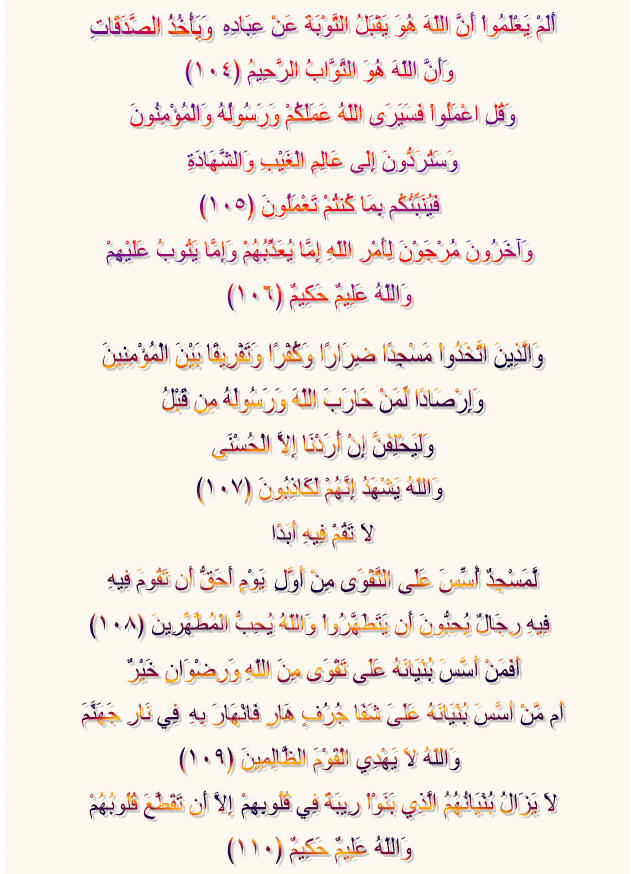 أَلَمْ يَعْلَمُواْ أَنَّ اللّهَ هُوَ يَقْبَلُ التَّوْبَةَ عَنْ عِبَادِهِ وَيَأْخُذُ الصَّدَقَاتِ
وَأَنَّ اللّهَ هُوَ التَّوَّابُ الرَّحِيمُ (١٠٤)
وَقُلِ اعْمَلُواْ فَسَيَرَى اللّهُ عَمَلَكُمْ وَرَسُولُهُ وَالْمُؤْمِنُونَ
وَسَتُرَدُّونَ إِلَى عَالِمِ الْغَيْبِ وَالشَّهَادَةِ
فَيُنَبِّئُكُم بِمَا كُنتُمْ تَعْمَلُونَ (١٠٥)
وَآخَرُونَ مُرْجَوْنَ لِأَمْرِ اللّهِ إِمَّا يُعَذِّبُهُمْ وَإِمَّا يَتُوبُ عَلَيْهِمْ
وَاللّهُ عَلِيمٌ حَكِيمٌ (١٠٦)
وَالَّذِينَ اتَّخَذُواْ مَسْجِدًا ضِرَارًا وَكُفْرًا وَتَفْرِيقًا بَيْنَ الْمُؤْمِنِينَ
وَإِرْصَادًا لِّمَنْ حَارَبَ اللّهَ وَرَسُولَهُ مِن قَبْلُ
وَلَيَحْلِفَنَّ إِنْ أَرَدْنَا إِلاَّ الْحُسْنَى
وَاللّهُ يَشْهَدُ إِنَّهُمْ لَكَاذِبُونَ (١٠٧)
لاَ تَقُمْ فِيهِ أَبَدًا
لَّمَسْجِدٌ أُسِّسَ عَلَى التَّقْوَى مِنْ أَوَّلِ يَوْمٍ أَحَقُّ أَن تَقُومَ فِيهِ
فِيهِ رِجَالٌ يُحِبُّونَ أَن يَتَطَهَّرُواْ وَاللّهُ يُحِبُّ الْمُطَّهِّرِينَ (١٠٨)
أَفَمَنْ أَسَّسَ بُنْيَانَهُ عَلَى تَقْوَى مِنَ اللّهِ وَرِضْوَانٍ خَيْرٌ
أَم مَّنْ أَسَّسَ بُنْيَانَهُ عَلَىَ شَفَا جُرُفٍ هَارٍ فَانْهَارَ بِهِ فِي نَارِ جَهَنَّمَ
وَاللّهُ لاَ يَهْدِي الْقَوْمَ الظَّالِمِينَ (١٠٩)
لاَ يَزَالُ بُنْيَانُهُمُ الَّذِي بَنَوْاْ رِيبَةً فِي قُلُوبِهِمْ إِلاَّ أَن تَقَطَّعَ قُلُوبُهُمْ
وَاللّهُ عَلِيمٌ حَكِيمٌ (١١٠)